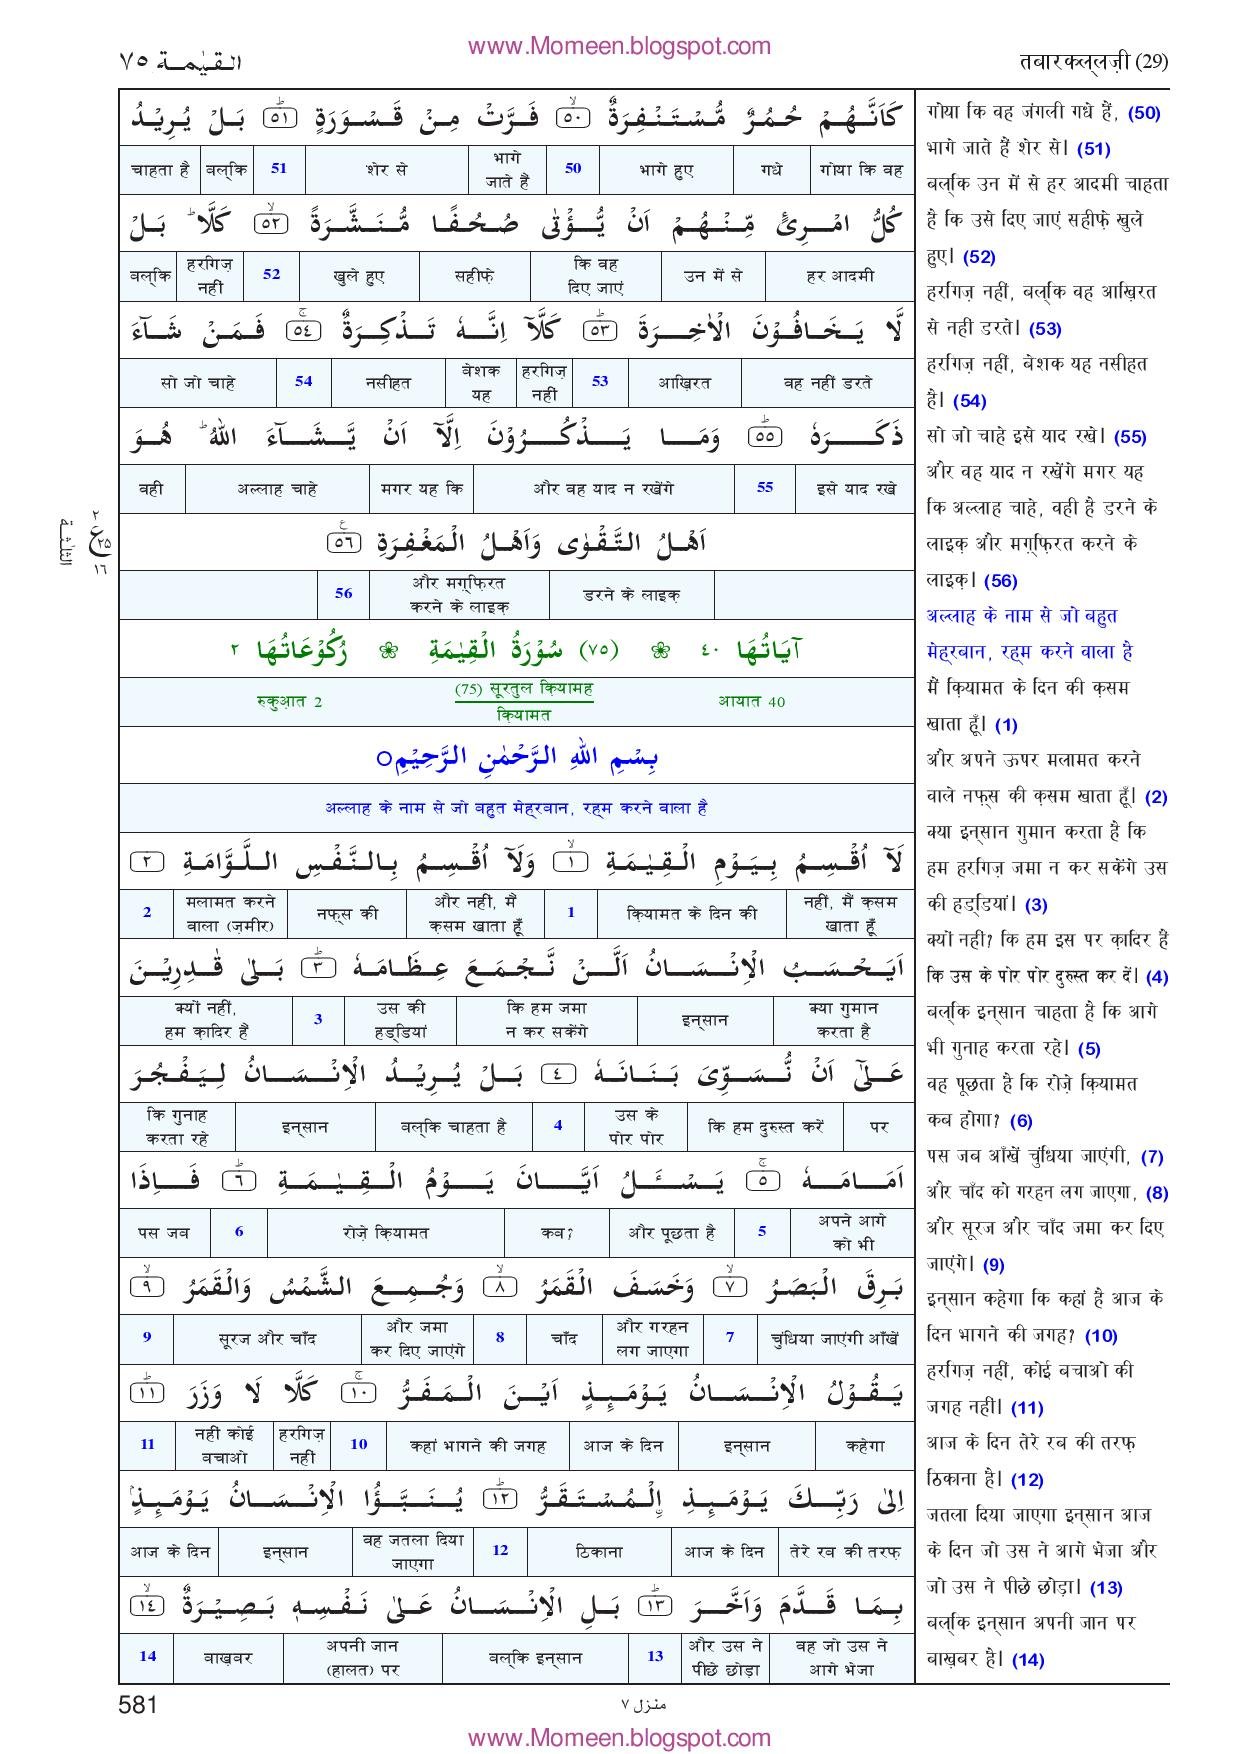 www.Momeen.blogspot.com
القيٰمة ٧٥
तबारकल्लज़ी (29)
كَاَنَّهُمْ حُمُرٌ مُّسْتَنْفِرَةٌ ۙ ٥٠ فَرَّتْ مِنْ قَسْوَرَةٍ ؕ ٥١ بَلْ يُرِيْدُ
गोया कि वह गधे भागे हुए 50 भागे जाते हैं शेर से 51 बल्कि चाहता है
كُلُّ امْرِئٍ مِّنْهُمْ اَنْ يُّؤْتٰى صُحُفًا مُّنَشَّرَةً ۙ ٥٢ كَلَّا ؕ بَلْ
हर आदमी उन में से कि वह दिए जाएं सहीफ़े खुले हुए 52 हरगिज़ नहीं बल्कि
لَّا يَخَافُوْنَ الْاٰخِرَةَ ؕ ٥٣ كَلَّآ اِنَّهٗ تَذْكِرَةٌ ۚ ٥٤ فَمَنْ شَآءَ
वह नहीं डरते आख़िरत 53 हरगिज़ नहीं बेशक यह नसीहत 54 सो जो चाहे
ذَكَرَهٗ ؕ ٥٥ وَمَا يَذْكُرُوْنَ اِلَّآ اَنْ يَّشَآءَ اللّٰهُ ؕ هُوَ
इसे याद रखे 55 और वह याद न रखेंगे मगर यह कि अल्लाह चाहे वही
اَهْلُ التَّقْوٰى وَاَهْلُ الْمَغْفِرَةِ ع ٥٦
डरने के लाइक़ और मग़्फ़िरत करने के लाइक़ 56
٢ ع ٢٥ ١٦
الثلثة
آيَاتُهَا ٤٠ ❀ (٧٥) سُوْرَةُ الْقِيٰمَةِ ❀ رُكُوْعَاتُهَا ٢
आयात 40 (75) सूरतुल क़ियामह क़ियामत रुकुआ़त 2
بِسْمِ اللّٰهِ الرَّحْمٰنِ الرَّحِيْمِ○
अल्लाह के नाम से जो बहुत मेह्रबान, रह्म करने वाला है
لَآ اُقْسِمُ بِيَوْمِ الْقِيٰمَةِ ۙ ١ وَلَآ اُقْسِمُ بِالنَّفْسِ اللَّوَّامَةِ ٢
नहीं, मैं क़सम खाता हूँ क़ियामत के दिन की 1 और नहीं, मैं क़सम खाता हूँ नफ़्स की मलामत करने वाला (ज़मीर) 2
اَيَحْسَبُ الْاِنْسَانُ اَلَّنْ نَّجْمَعَ عِظَامَهٗ ؕ ٣ بَلٰى قٰدِرِيْنَ
क्या गुमान करता है इन्सान कि हम जमा न कर सकेंगे उस की हड्डियां 3 क्यों नहीं, हम क़ादिर हैं
عَلٰٓى اَنْ نُّسَوِّىَ بَنَانَهٗ ٤ بَلْ يُرِيْدُ الْاِنْسَانُ لِيَفْجُرَ
पर कि हम दुरुस्त करें उस के पोर पोर 4 बल्कि चाहता है इन्सान कि गुनाह करता रहे
اَمَامَهٗ ۚ ٥ يَسْـَٔلُ اَيَّانَ يَوْمُ الْقِيٰمَةِ ؕ ٦ فَاِذَا
अपने आगे को भी 5 और पूछता है कब? रोज़े क़ियामत 6 पस जब
بَرِقَ الْبَصَرُ ۙ ٧ وَخَسَفَ الْقَمَرُ ۙ ٨ وَجُمِعَ الشَّمْسُ وَالْقَمَرُ ۙ ٩
चुंधिया जाएंगी आँखें 7 और गरहन लग जाएगा चाँद 8 और जमा कर दिए जाएंगे सूरज और चाँद 9
يَقُوْلُ الْاِنْسَانُ يَوْمَىِٕذٍ اَيْنَ الْمَفَرُّ ۚ ١٠ كَلَّا لَا وَزَرَ ؕ ١١
कहेगा इन्सान आज के दिन कहां भागने की जगह 10 हरगिज़ नहीं नहीं कोई बचाओ 11
اِلٰى رَبِّكَ يَوْمَىِٕذِ ِۨالْمُسْتَقَرُّ ؕ ١٢ يُنَبَّؤُا الْاِنْسَانُ يَوْمَىِٕذٍۭ
तेरे रब की तरफ़ आज के दिन ठिकाना 12 वह जतला दिया जाएगा इन्सान आज के दिन
بِمَا قَدَّمَ وَاَخَّرَ ؕ ١٣ بَلِ الْاِنْسَانُ عَلٰى نَفْسِهٖ بَصِيْرَةٌ ۙ ١٤
वह जो उस ने आगे भेजा और उस ने पीछे छोड़ा 13 बल्कि इन्सान अपनी जान (हालत) पर बाख़बर 14
गोया कि वह जंगली गधे हैं, (50)
भागे जाते हैं शेर से। (51)
बल्कि उन में से हर आदमी चाहता
है कि उसे दिए जाएं सहीफ़े खुले
हुए। (52)
हरगिज़ नहीं, बल्कि वह आख़िरत
से नही डरते। (53)
हरगिज़ नहीं, बेशक यह नसीहत
है। (54)
सो जो चाहे इसे याद रखे। (55)
और वह याद न रखेंगे मगर यह
कि अल्लाह चाहे, वही है डरने के
लाइक़ और मग़्फ़िरत करने के
लाइक़। (56)
अल्लाह के नाम से जो बहुत
मेह्रबान, रह्म करने वाला है
मैं क़ियामत के दिन की क़सम
खाता हूँ। (1)
और अपने ऊपर मलामत करने
वाले नफ़्स की क़सम खाता हूँ। (2)
क्या इन्सान गुमान करता है कि
हम हरगिज़ जमा न कर सकेंगे उस
की हड्डियां। (3)
क्यों नही? कि हम इस पर क़ादिर हैं
कि उस के पोर पोर दुरुस्त कर दें। (4)
बल्कि इन्सान चाहता है कि आगे
भी गुनाह करता रहे। (5)
वह पूछता है कि रोज़े क़ियामत
कब होगा? (6)
पस जब आँखें चुंधिया जाएंगी, (7)
और चाँद को गरहन लग जाएगा, (8)
और सूरज और चाँद जमा कर दिए
जाएंगे। (9)
इन्सान कहेगा कि कहां है आज के
दिन भागने की जगह? (10)
हरगिज़ नहीं, कोई बचाओ की
जगह नहीं। (11)
आज के दिन तेरे रब की तरफ़
ठिकाना है। (12)
जतला दिया जाएगा इन्सान आज
के दिन जो उस ने आगे भेजा और
जो उस ने पीछे छोड़ा। (13)
बल्कि इन्सान अपनी जान पर
बाख़बर है। (14)
581
منزل ٧
www.Momeen.blogspot.com